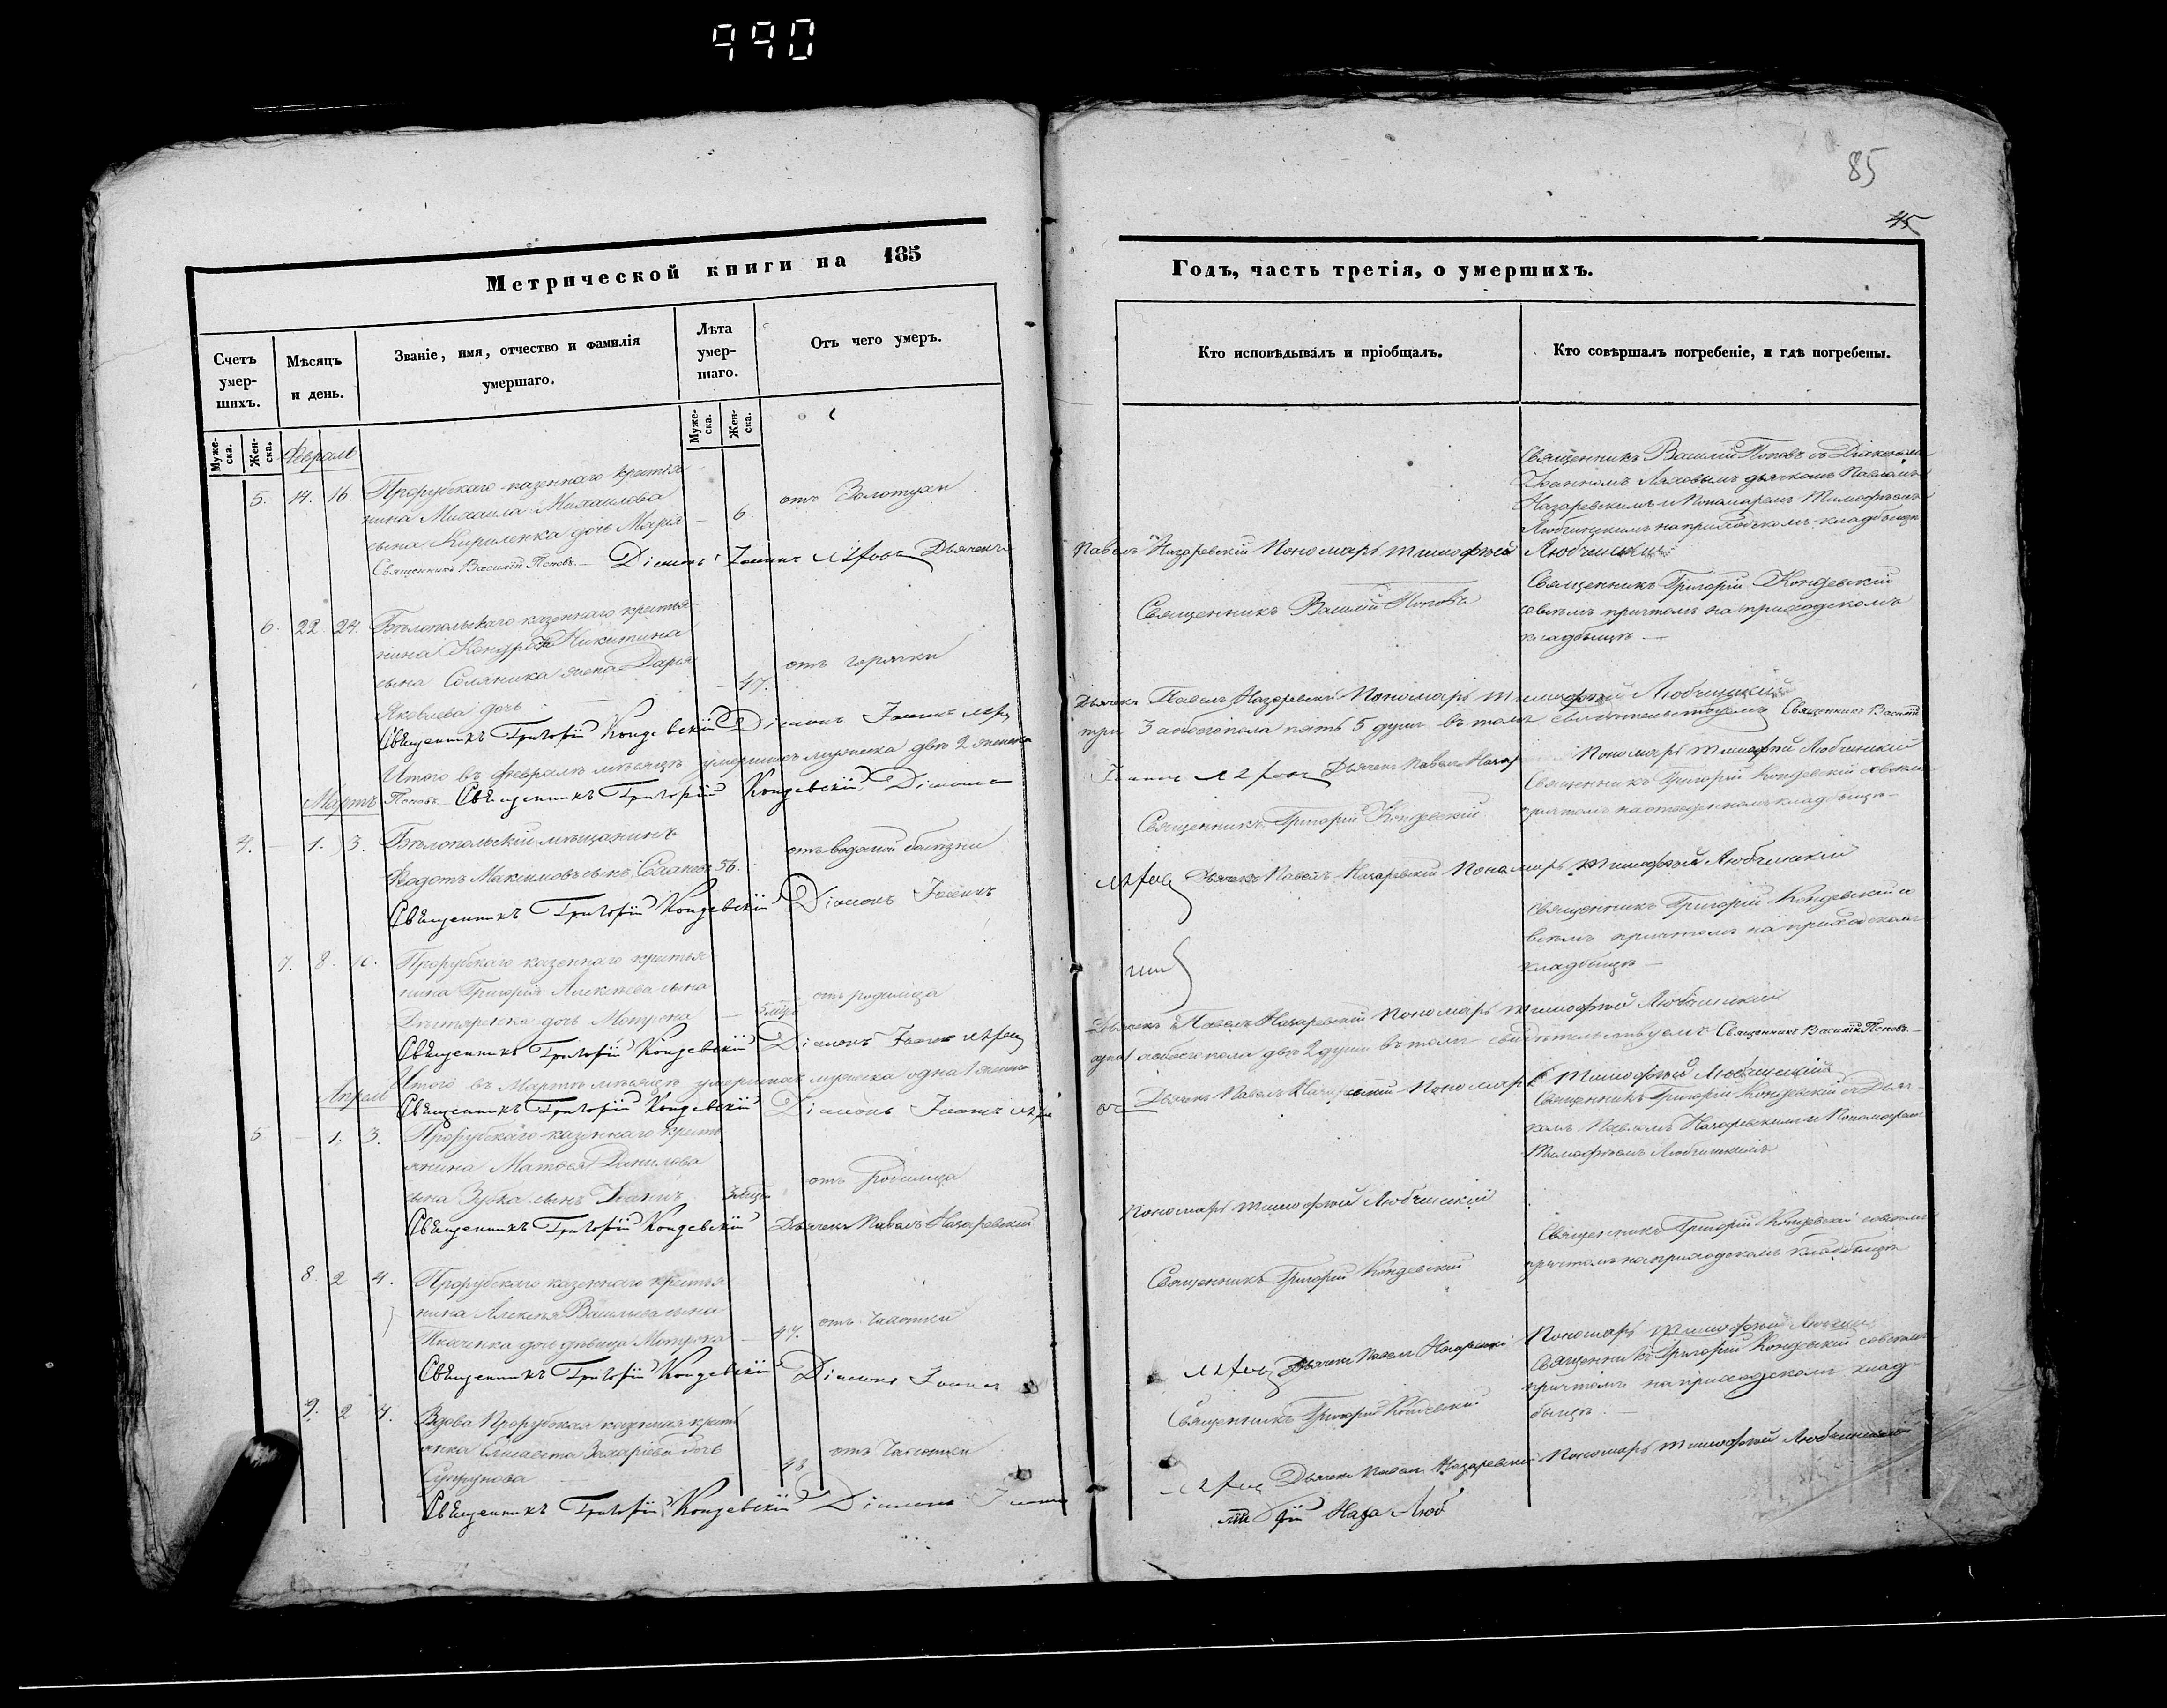 990
85
45
Метрической книги на 185
Счетъ умер-шихъ.
Мѣсяцъ и день.
Званіе, имя, отчество и фамилія умершаго.
Лѣта умер-шаго.
Отъ чего умеръ.
Муже-ска.
Жен-ска.
Муже-ска.
Жен-ска.
Февраль
5. 14. 16. Прорубскаго казеннаго крестья
нина Михаила Михаилова
сына Кириленка дочь Марія — 6. отъ Золотухи
Священникъ Василій Поповъ. — Діаконъ Іоаннъ Дьячекъ
6. 22. 24. Бѣлопольскаго казеннаго крестья
нина Никитина
сына Соляника жена Дарья
Яковлева дочь — 47. отъ горячки
Священникъ Григорій Кондевскій Діаконъ Іоаннъ
Итого въ Февралѣ мѣсяцѣ умершихъ мужеска двѣ 2 женска
Поповъ Священникъ Григорій Кондевскій Діаконъ
Мартъ
4. — 1. 3. Бѣлопольскій мѣщанинъ
Федотъ Максимовъ сынъ 56. отъ водяной болѣзни
Священникъ Григорій Кондевскій Діаконъ Іоаннъ
7. 8. Прорубскаго казеннаго крестья
нина Григорія Алексѣева сына
дочь Мотрона — отъ родимца
Священникъ Григорій Кондевскій Діаконъ Іоаннъ
Итого въ Мартѣ мѣсяцѣ умершихъ мужеска одна 1 женска
Апрель
Священникъ Григорій Кондевскій Діаконъ Іоаннъ
5 — 1. 3. Прорубскаго казеннаго кресть
янина Матвея Данилова
сына Зубка сынъ отъ Родимца
Священникъ Григорій Кондевскій Дьячекъ Павелъ Назаревскій
8. 2 4. Прорубскаго казеннаго крестья
нина Алексѣя Васильева сына
Ткаченка дочь дѣвица Мотрона — 47. отъ Чахотки
Священникъ Григорій Кондевскій Діаконъ Іоаннъ
9. 2 4. Вдова Прорубская казенная кресть
янка Елисавета Захаріева дочь
Супрунова 48 отъ Чахотки
Священникъ Григорій Кондевскій Діаконъ
Годъ, часть третія, о умершихъ.
Кто исповѣдывалъ и пріобщалъ.
Кто совѣршалъ погребеніе, и гдѣ погребены.
Священникъ Василій Поповъ съ Діакономъ
Іоанномъ Ляховымъ дьячкомъ Павломъ
Назаревскимъ и Пономаремъ Тимофѣемъ
Любчицкимъ на приходскомъ кладбищѣ
Павелъ Назаревскій Пономарь Тимофѣй Любчицкій
Священникъ Василій Поповъ
Священникъ Григорій Кондевскій
совсѣмъ причтомъ на приходскомъ
кладбищѣ —
Дьячекъ Павелъ Назаревскій Пономарь Тимофѣй Любчицкій
три 3 а обоего пола пять 5 душъ въ томъ свидѣтельствуемъ Священникъ Василій
Іоаннъ Дьячекъ Павелъ Пономарь Тимофѣй Любчицкій
Священникъ Григорій Кондевскій
Священникъ Григорій Кондевскій совсѣмъ
причтомъ на кладбищѣ —
Дьячекъ Павелъ Назаревскій Пономарь Тимофѣй Любчицкій
Священникъ Григорій Кондевскій со
всѣмъ причтомъ на приходскомъ
кладбищѣ —
Дьячекъ Павелъ Назаревскій Пономарь Тимофѣй Любчицкій
одна 1 а обоего пола двѣ 2 души въ томъ свидѣтельствуемъ Священникъ Василій Поповъ. —
Дьячекъ Павелъ Назаревскій Пономарь Тимофѣй Любчицкій
Священникъ Григорій Кондевскій съ Дьяч
комъ Павломъ Назаревскимъ и Пономаремъ
Тимофѣемъ Любчицкимъ
Пономарь Тимофѣй Любчицкій
Священникъ Григорій Кондевскій
Священникъ Григорій Кондевскій совсѣмъ
причтомъ на приходскомъ кладбищѣ
Дьячекъ Павелъ Назаревскій Пономарь Тимофѣй
Священникъ Григорій Кондевскій
Священникъ Григорій Кондевскій совсѣмъ
причтомъ на приходскомъ клад
бищѣ —
Дьячекъ Павелъ Назаревскій Пономарь Тимофѣй Любчицкій
рій Наза Люб